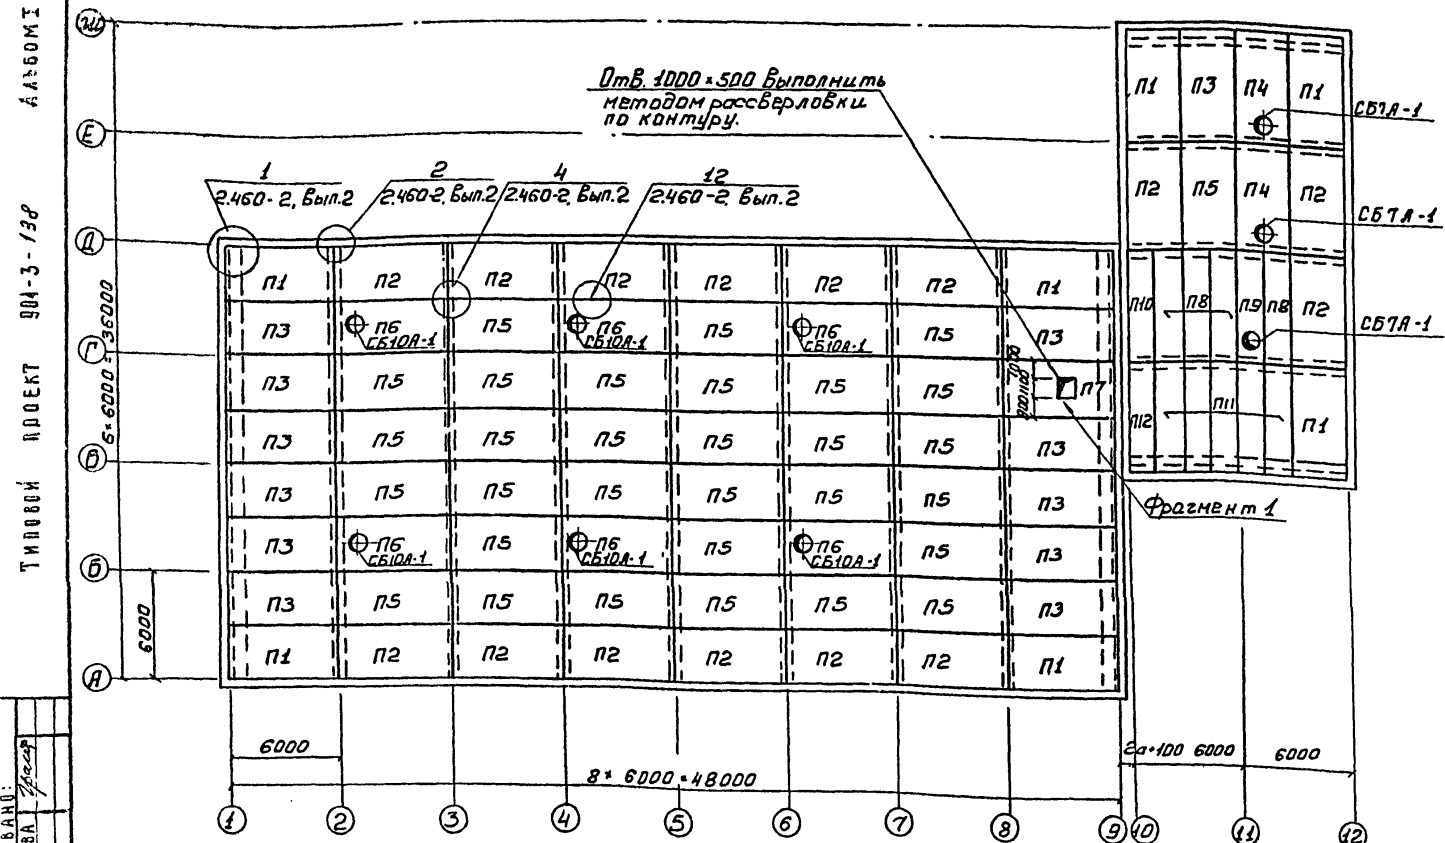 АЛЬБОМ I
ТИПОВОЙ ПРОЕКТ 904-3-138
Ж
Е
Д
Г
В
Б
А
6×6000=36000
6000
Отв. 1000×500 выполнить
методом рассверловки
по контуру.
1
2.460-2, Вып.2
2
2.460-2, Вып.2
4
2.460-2, Вып.2
12
2.460-2, Вып.2
П1 П2 П2 П2 П2 П2 П2 П1
П3 П6 П5 П6 П5 П6 П5 П3
СБ10А-1 СБ10А-1 СБ10А-1
П3 П5 П5 П5 П5 П5 П5 П7
П3 П5 П5 П5 П5 П5 П5 П3
П3 П5 П5 П5 П5 П5 П5 П3
П3 П6 П5 П6 П5 П6 П5 П3
СБ10А-1 СБ10А-1 СБ10А-1
П3 П5 П5 П5 П5 П5 П5 П3
П1 П2 П2 П2 П2 П2 П2 П1
П1 П3 П4 П1
СБ7А-1
П2 П5 П4 П2
СБ7А-1
П10 П8 П9 П8 П2
СБ7А-1
П12 П11 П1
Фрагмент 1
6000
8×6000=48000
2а+100 6000 6000
1 2 3 4 5 6 7 8 9 10 11 12